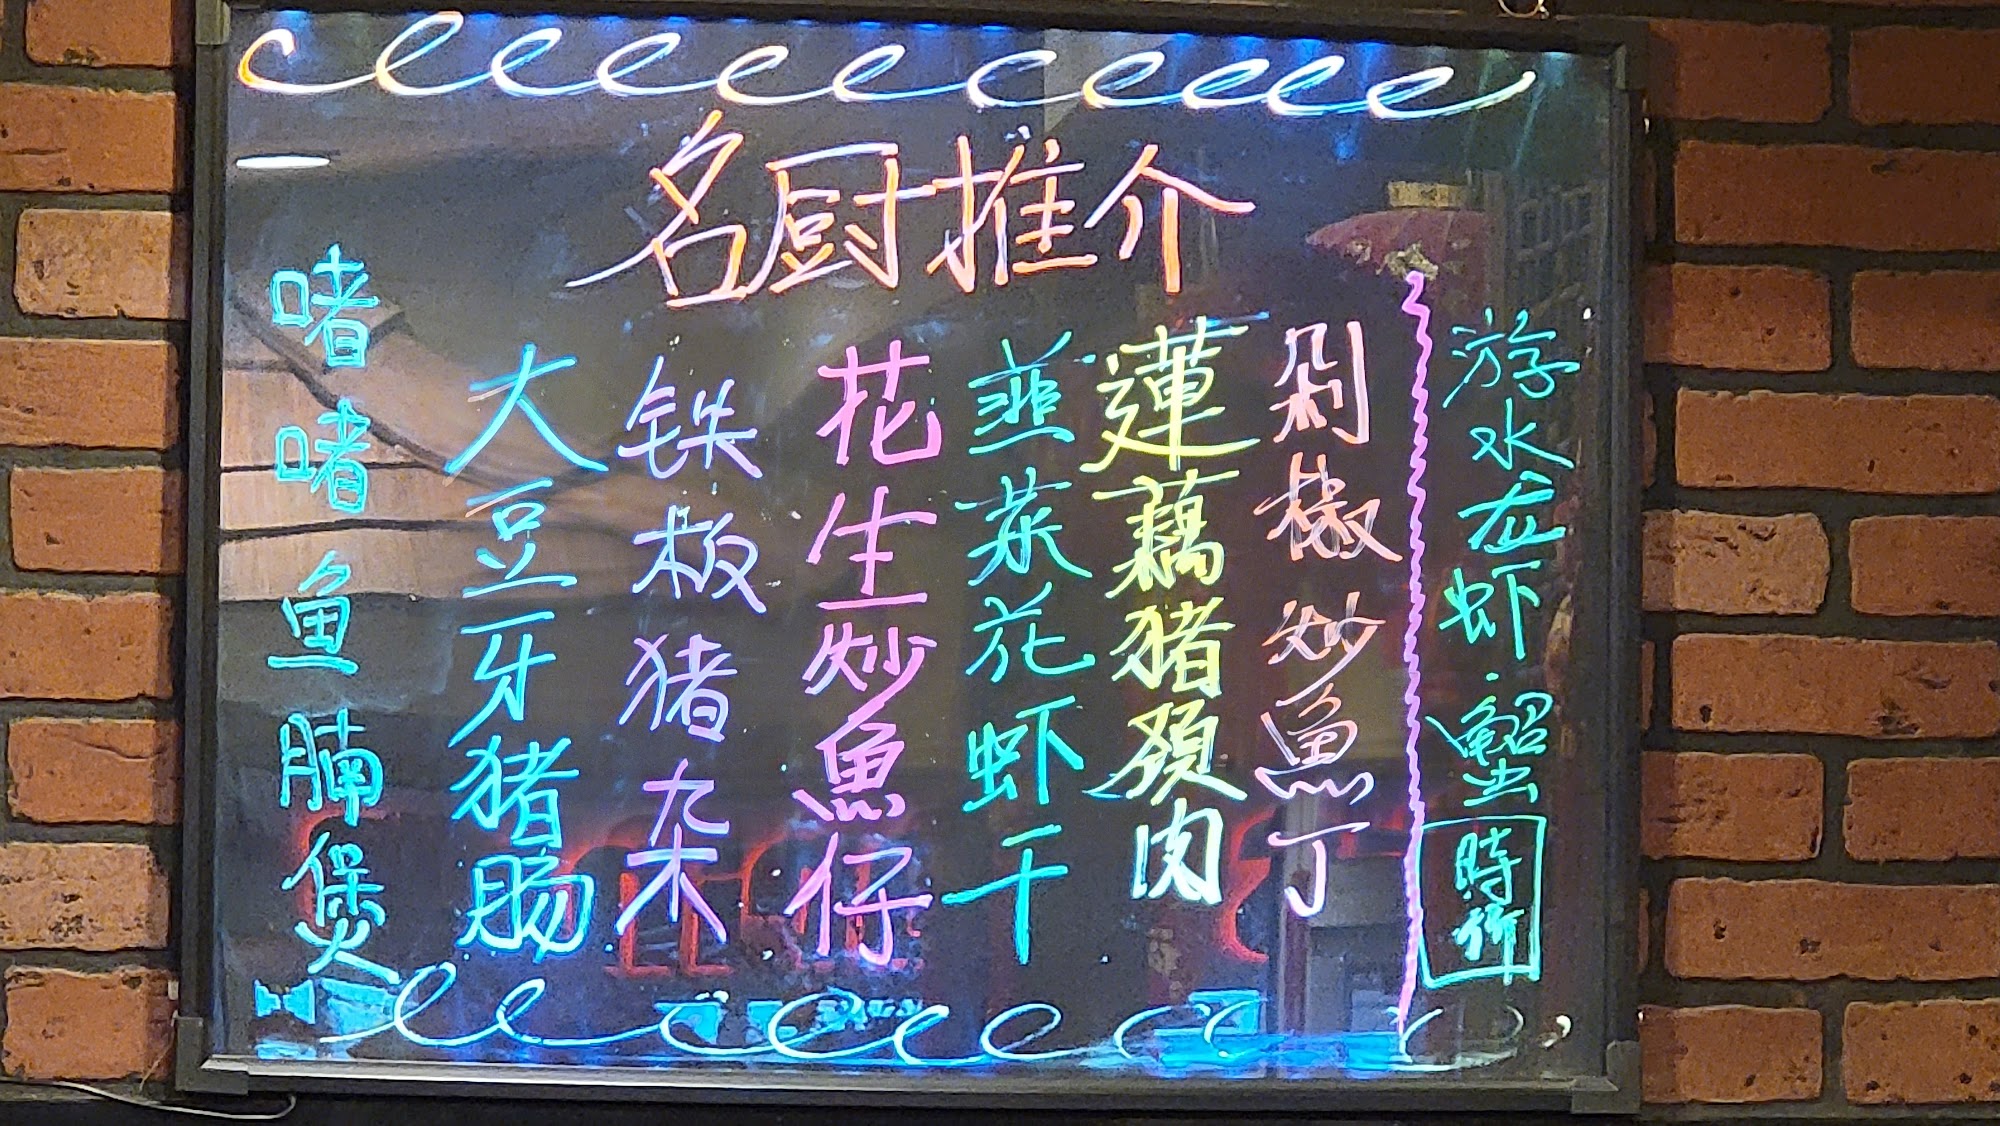 名厨推介
游水龙虾·蟹
時
剁椒炒魚丁
蓮藕猪頸肉
韮菜花虾干
花生炒魚仔
铁板猪杂
大豆牙猪肠
啫啫鱼腩煲